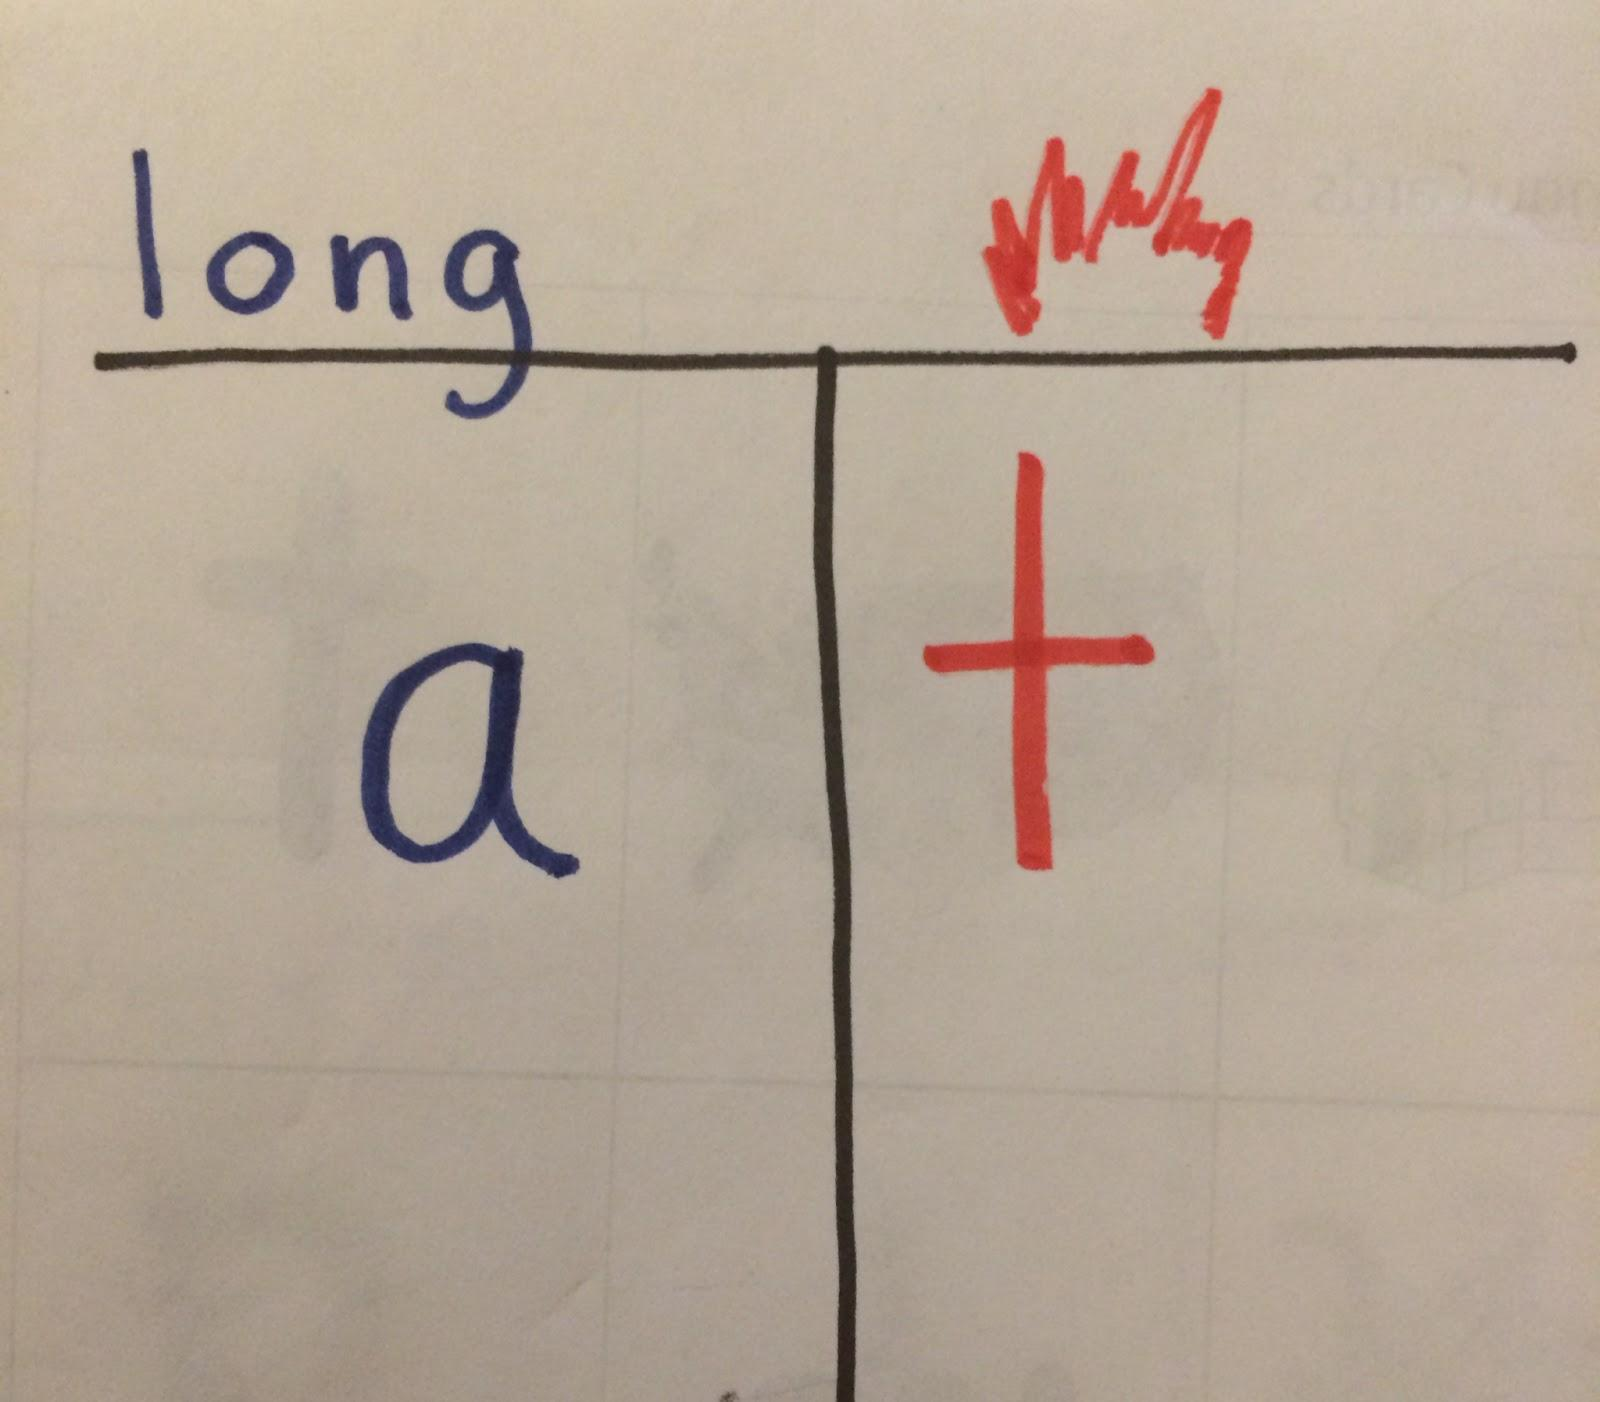 long
a t